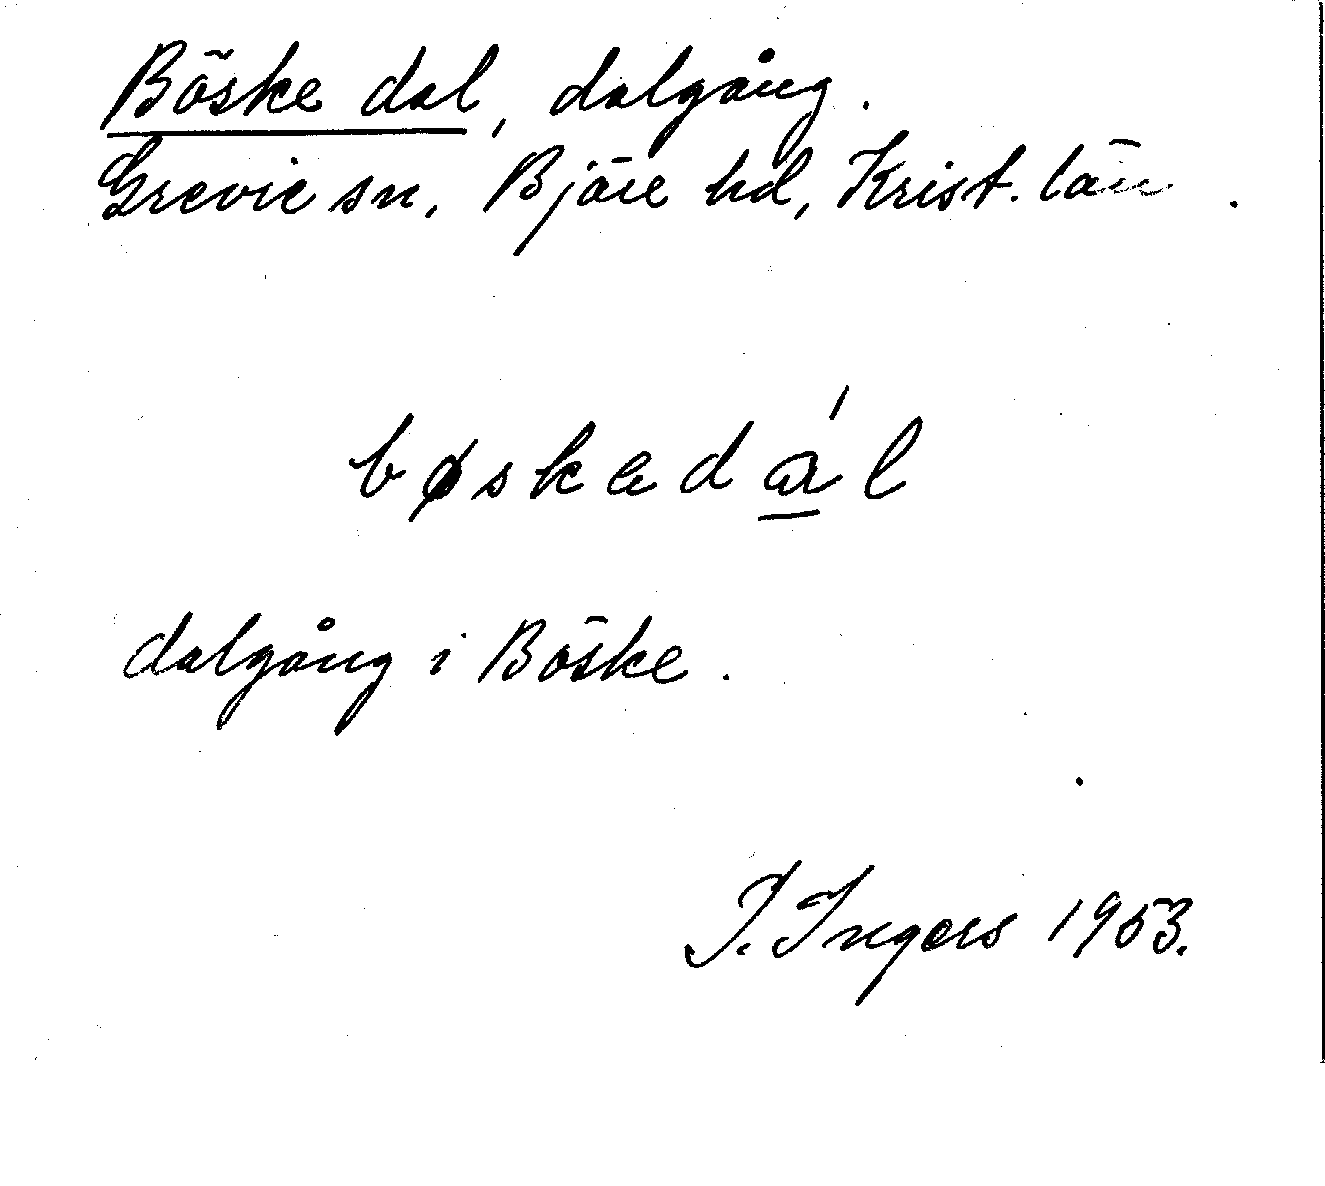 Böske dal, dalgång.
Grevie sn, Bjäre hd, Krist. län.
bøskadál
dalgång i Böske.
I. Ingers 1953.